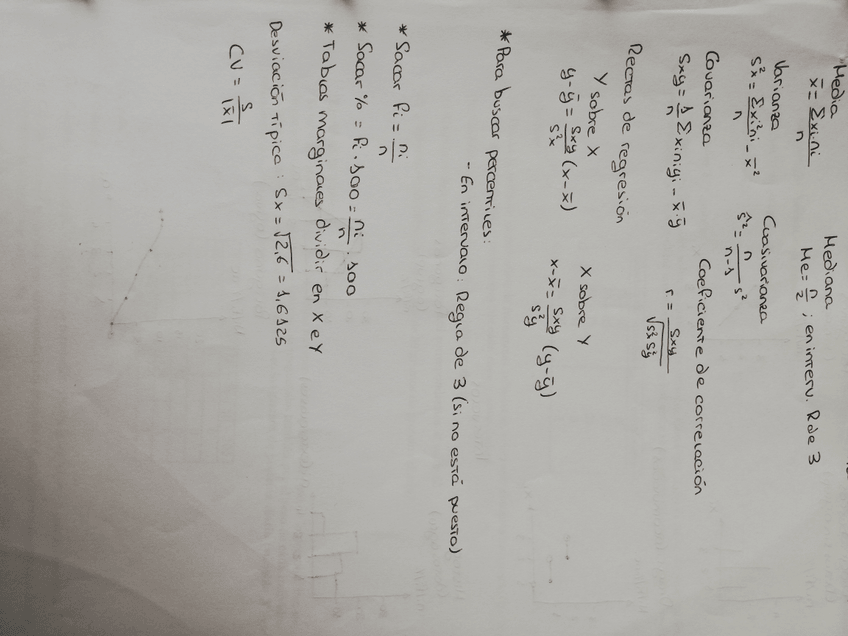 Media
x̄ = Σxi·ni / n
Mediana
Me = n/2 ; en interv. R de 3
Varianza
s²x = Σxi²ni / n - x̄²
Cuasivarianza
ŝ² = n / n-1 s²
Covarianza
Sxy = 1/n Σxiniyi - x̄·ȳ
Coeficiente de correlación
r = Sxy / √s²x s²y
Rectas de regresión
Y sobre X
y-ȳ = Sxy / s²x (x-x̄)
X sobre Y
x-x̄ = Sxy / s²y (y-ȳ)
* Para buscar percentiles:
- En intervalo: Regla de 3 (si no está puesto)
* Sacar fi = ni / n
* Sacar % = fi · 100 = ni / n · 100
* Tablas marginales dividir en X e Y
Desviación típica : Sx = √2,6 = 1,6125
CV = S / |x̄|